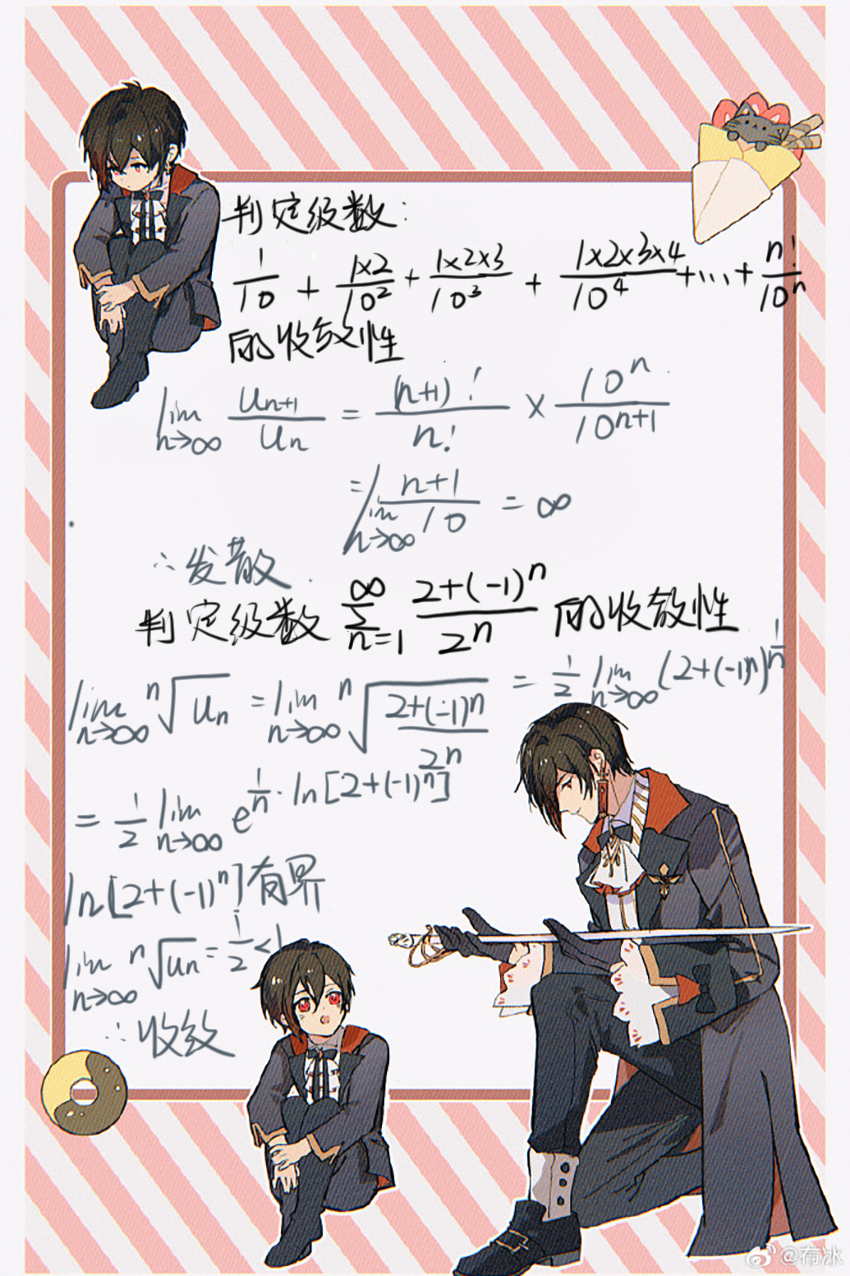 判定级数:
1/10 + 1×2/10² + 1×2×3/10³ + 1×2×3×4/10⁴ +...+ n!/10ⁿ
的收敛性
lim n→∞ Un+1/Un = (n+1)!/n! × 10ⁿ/10ⁿ⁺¹
= lim n→∞ n+1/10 = ∞
∴发散.
判定级数 ∞ Σ n=1 2+(-1)ⁿ/2ⁿ 的收敛性
lim n→∞ ⁿ√Un = lim n→∞ ⁿ√(2+(-1)ⁿ/2ⁿ) = 1/2 lim n→∞ (2+(-1)ⁿ)^1/n
= 1/2 lim n→∞ e^(1/n · ln[2+(-1)ⁿ])
ln[2+(-1)ⁿ]有界
lim n→∞ ⁿ√Un = 1/2 <1
∴收敛
@布冰